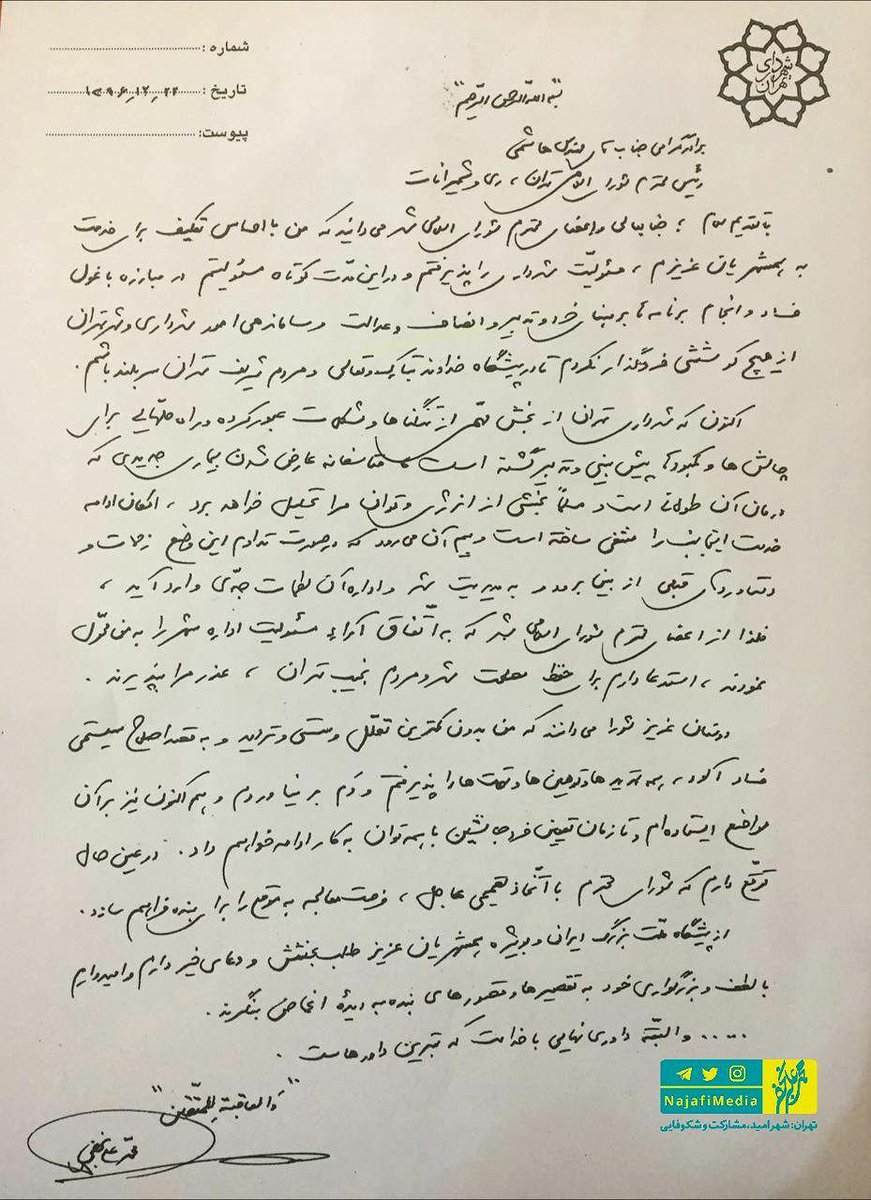 شهرداری تهران
شماره :
تاریخ : ۱۳۹۶,۱۲,۲۲
پیوست:
بسم الله الرحمن الرحیم
برادر گرامی جناب آقای مهندس هاشمی
رئیس محترم شورای اسلامی تهران، ری و شمیرانات
با تقدیم سلام؛ جنابعالی و اعضای محترم شورای اسلامی شهر می‌دانید که من با احساس تکلیف برای خدمت
به همشهریان عزیزم، مسئولیت شهرداری را پذیرفتم و در این مدت کوتاه مسئولیتم در مبارزه با غول
فساد و انجام برنامه‌ها بر مبنای خرد و تدبیر و انصاف و عدالت و ساماندهی امور شهرداری و شهر تهران
از هیچ کوششی فروگذار نکردم تا در پیشگاه خداوند تبارک و تعالی و مردم شریف تهران سربلند باشم.
اکنون که شهرداری تهران از بخش مهمی از تنگناها و مشکلات عبور کرده و راه حلهایی برای
چالش‌ها و کمبودها پیش بینی و تدبیر گشته است متاسفانه عارض شدن بیماری جدیدی که
درمان آن طولانی است و مسلماً بخشی از انرژی و توان مرا تحلیل خواهد برد، امکان ادامه
خدمت اینجانب را منتفی ساخته است و بیم آن می‌رود که در صورت تداوم این وضع زحمات و
دستاوردهای قبلی از بین برود و به مدیریت شهر و اداره آن لطمات جدّی وارد آید،
فلذا از اعضای محترم شورای اسلامی شهر که به اتّفاق آراء مسئولیت اداره شهر را به من محوّل
نمودند، استدعا دارم برای حفظ مصلحت شهر و مردم نجیب تهران، عذر مرا بپذیرند.
دوستان عزیز شورا می‌دانند که من بدون کمترین تعلّل و سستی و تردید و به قصد اصلاح سیستمی
فساد آلود، همه تهدیدها و توهین‌ها و تهمت‌ها را پذیرفتم و دَم بر نیاوردم و هم اکنون نیز بر آن
مواضع ایستاده‌ام و تا زمان تعیین فرد جانشین با همه توان به کار ادامه خواهم داد. در عین حال
توقّع دارم که شورای محترم با اتّخاذ تصمیمی عاجل، فرصت معالجه به موقع را برای بنده فراهم سازد.
از پیشگاه ملّت بزرگ ایران و بویژه همشهریان عزیز طلب بخشش و دعای خیر دارم و امیدوارم
با لطف و بزرگواری خود به تقصیرها و قصورهای بنده به دیدهٔ اغماض بنگرند.
..... و البتّه داوری نهایی با خداست که بهترین داورهاست.
"والعاقبة للمتّقین"
محمد علی نجفی
NajafiMedia
محمدعلی نجفی
تهران: شهر امید، مشارکت و شکوفایی